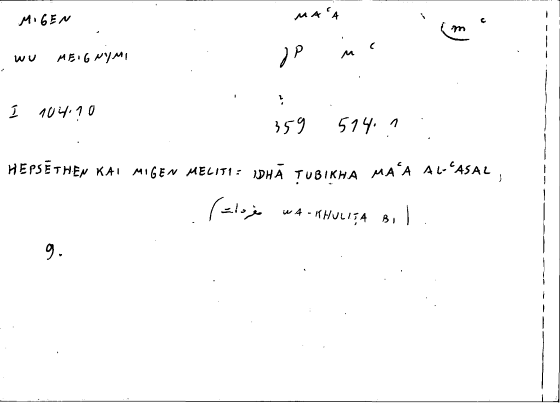 MIGEN MAᶜA (m ᶜ
WU MEIGNYMI JP M ᶜ
I 104.10 359 514.1
HEPSĒTHEN KAI MIGEN MELITI = IDHĀ ṬUBIKHA MAᶜA AL-ᶜASAL,
(مفردات WA-KHULIṬA BI)
9.